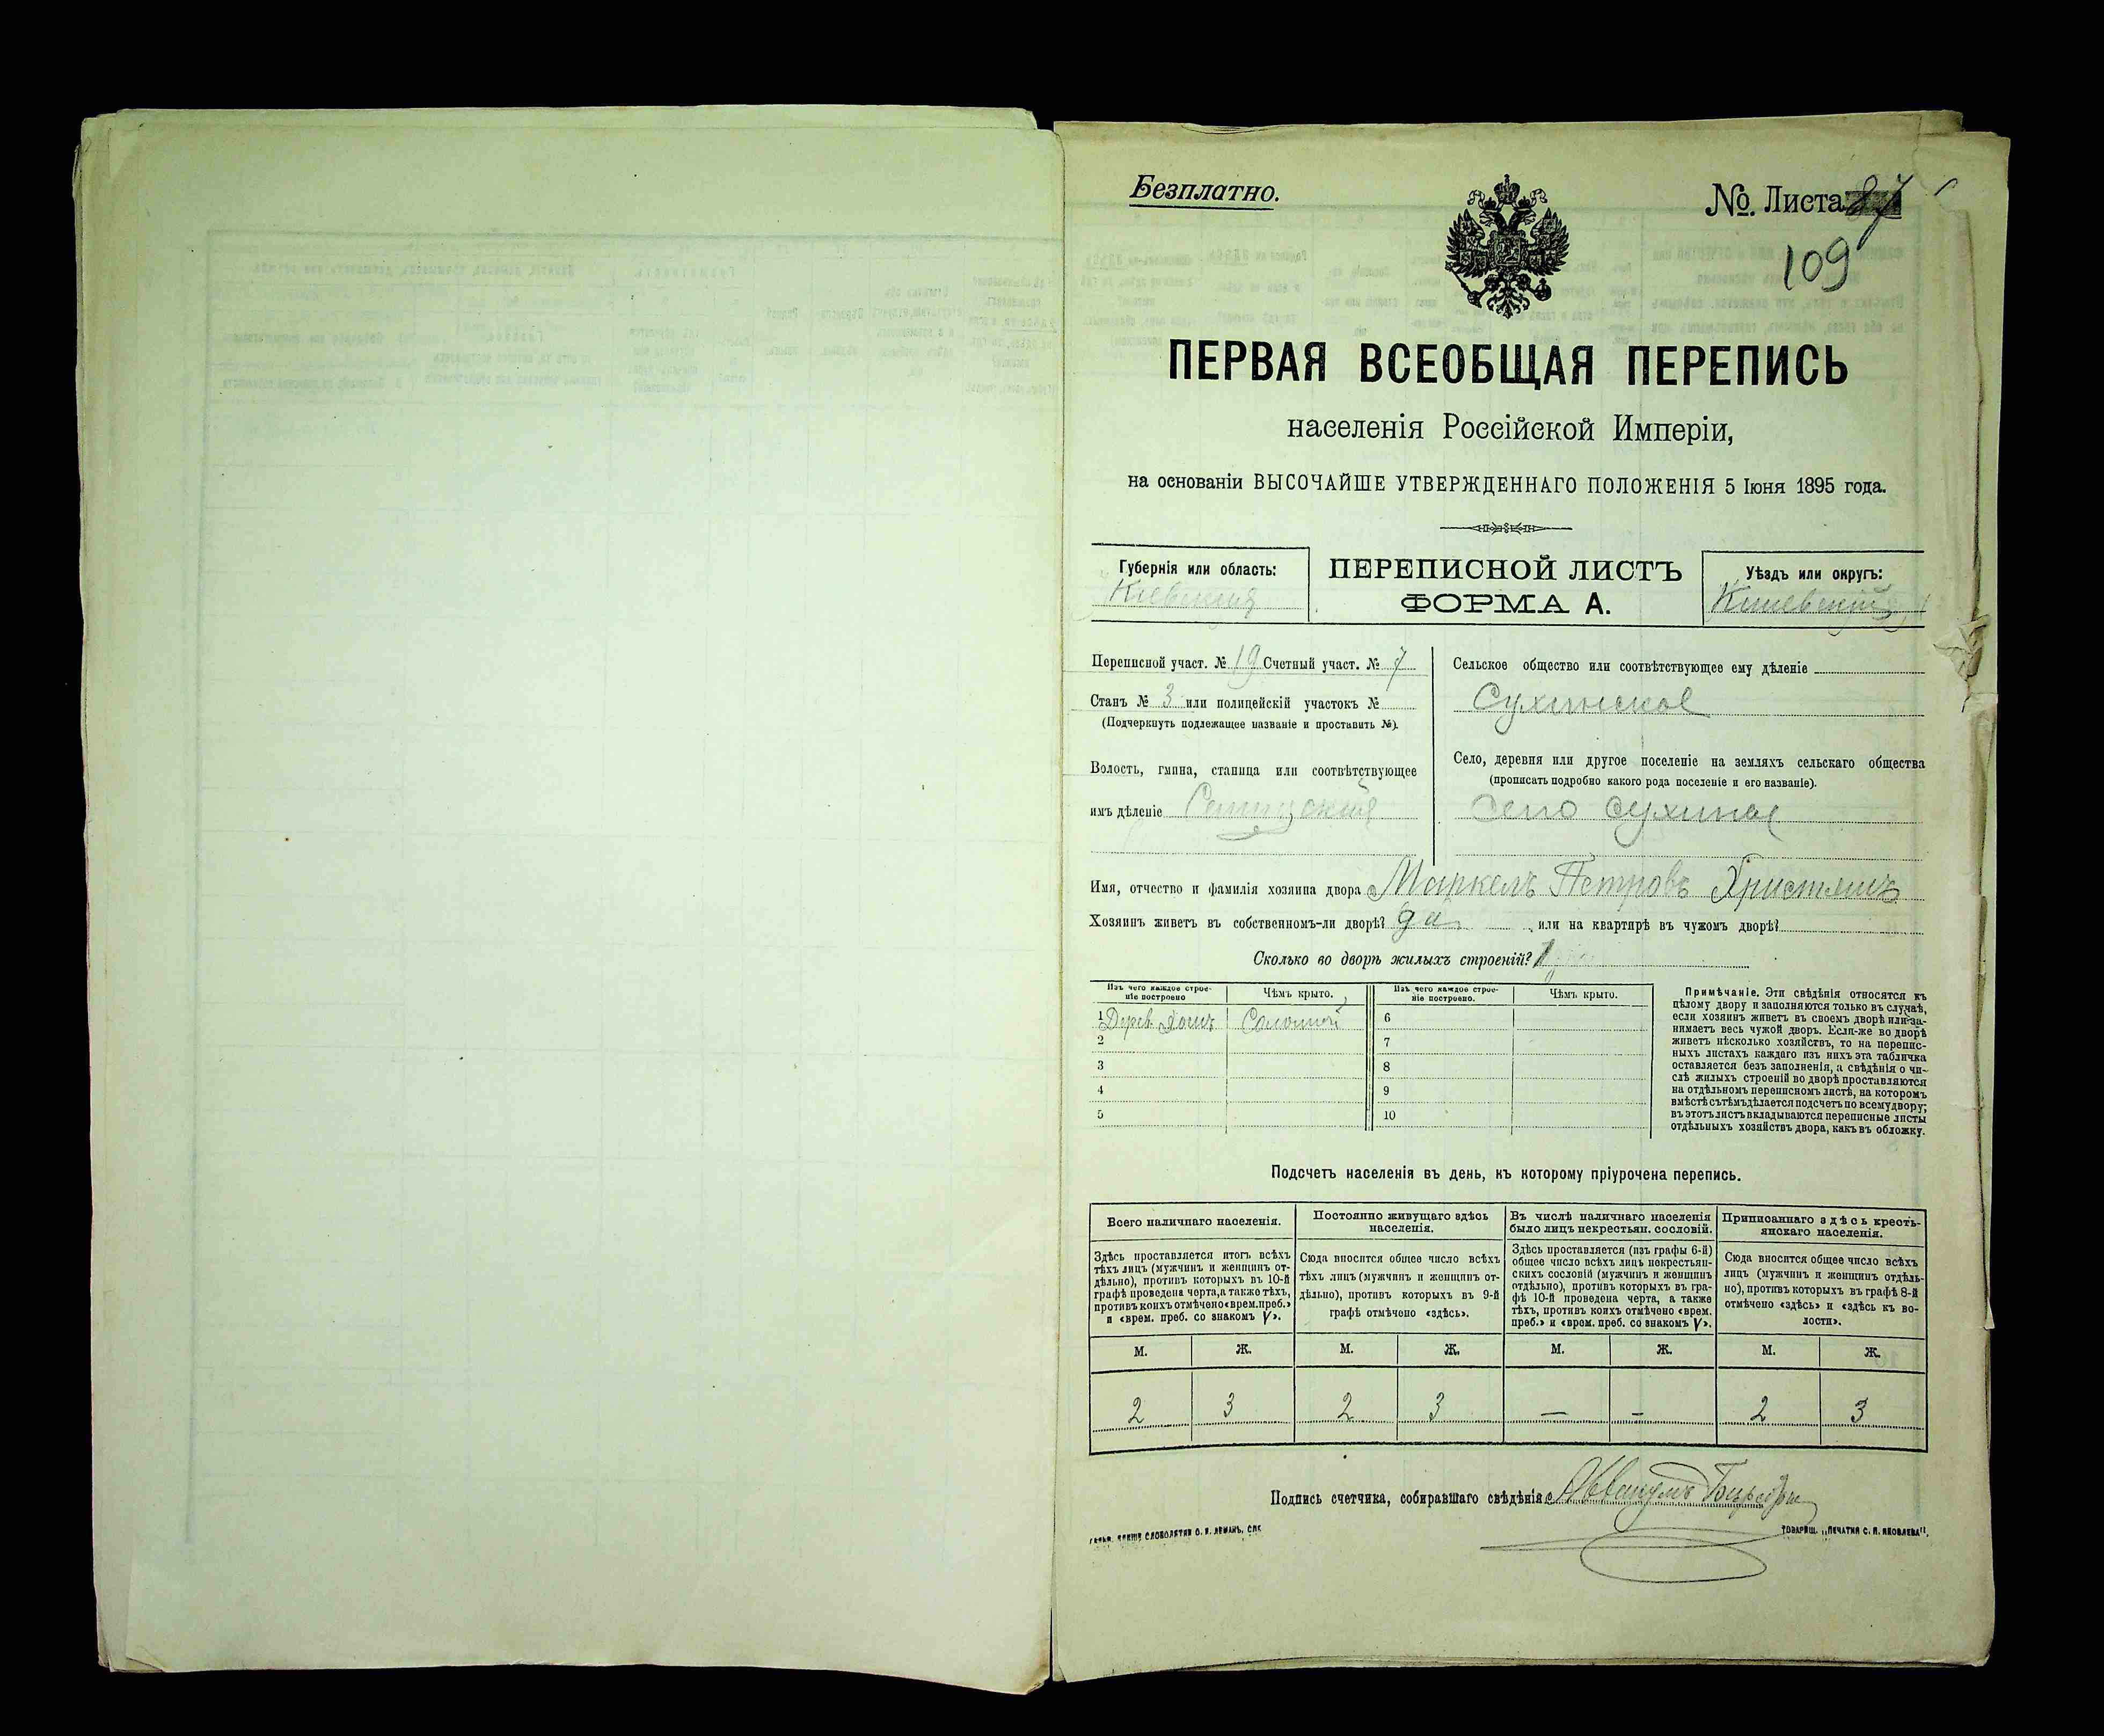 Безплатно.
№ Листа 87
109
ПЕРВАЯ ВСЕОБЩАЯ ПЕРЕПИСЬ
населенія Россійской Имперіи,
на основаніи ВЫСОЧАЙШЕ УТВЕРЖДЕННАГО ПОЛОЖЕНІЯ 5 Іюня 1895 года.
Губернія или область:
Кіевская
ПЕРЕПИСНОЙ ЛИСТЪ
ФОРМА А.
Уѣздъ или округъ:
Кіевскій
Переписной участ. № 19 Счетный участ. № 7
Станъ № 3 или полицейскій участокъ №
(Подчеркнуть подлежащее названіе и проставить №).
Волость, гмина, станица или соотвѣтствующее
имъ дѣленіе
Сельское общество или соотвѣтствующее ему дѣленіе
Сухинское
Село, деревня или другое поселеніе на земляхъ сельскаго общества
(прописать подробно какого рода поселеніе и его названіе).
село Сухины
Имя, отчество и фамилія хозяина двора Маркелъ Петровъ
Хозяинъ живетъ въ собственномъ-ли дворѣ? да или на квартирѣ въ чужомъ дворѣ?
Сколько во дворѣ жилыхъ строеній? 1
Изъ чего каждое строе-
ніе построено
Чѣмъ крыто.
Изъ чего каждое строе-
ніе построено.
Чѣмъ крыто.
1 Дерев. домъ Соломой 6
2 7
3 8
4 9
5 10
Примѣчаніе. Эти свѣдѣнія относятся къ
цѣлому двору и заполняются только въ случаѣ,
если хозяинъ живетъ въ своемъ дворѣ или за-
нимаетъ весь чужой дворъ. Если-же во дворѣ
живетъ нѣсколько хозяйствъ, то на перепис-
ныхъ листахъ каждаго изъ нихъ эта табличка
оставляется безъ заполненія, а свѣдѣнія о чи-
слѣ жилыхъ строеній во дворѣ проставляются
на отдѣльномъ переписномъ листѣ, на которомъ
вмѣстѣ съ тѣмъ дѣлается подсчетъ по всему двору;
въ этотъ листъ вкладываются переписные листы
отдѣльныхъ хозяйствъ двора, какъ въ обложку.
Подсчетъ населенія въ день, къ которому пріурочена перепись.
Всего наличнаго населенія.
Здѣсь проставляется итогъ всѣхъ
тѣхъ лицъ (мужчинъ и женщинъ от-
дѣльно), противъ которыхъ въ 10-й
графѣ проведена черта, а также тѣхъ,
противъ коихъ отмѣчено «врем. преб.»
и «врем. преб. со знакомъ V».
Постоянно живущаго здѣсь
населенія.
Сюда вносится общее число всѣхъ
тѣхъ лицъ (мужчинъ и женщинъ от-
дѣльно), противъ которыхъ въ 9-й
графѣ отмѣчено «здѣсь».
Въ числѣ наличнаго населенія
было лицъ некрестьян. сословій.
Здѣсь проставляется (изъ графы 6-й)
общее число всѣхъ лицъ некрестьян-
скихъ сословій (мужчинъ и женщинъ
отдѣльно), противъ которыхъ въ гра-
фѣ 10-й проведена черта, а также
тѣхъ, противъ коихъ отмѣчено «врем.
преб.» и «врем. преб. со знакомъ V».
Приписаннаго здѣсь кресть-
янскаго населенія.
Сюда вносится общее число всѣхъ
лицъ (мужчинъ и женщинъ отдѣль-
но), противъ которыхъ въ графѣ 8-й
отмѣчено «здѣсь» и «здѣсь къ во-
лости».
М. Ж. М. Ж. М. Ж. М. Ж.
2 3 2 3 — — 2 3
Подпись счетчика, собиравшаго свѣдѣнія
ТОВАРИЩ. „ПЕЧАТНЯ С. П. ЯКОВЛЕВА".